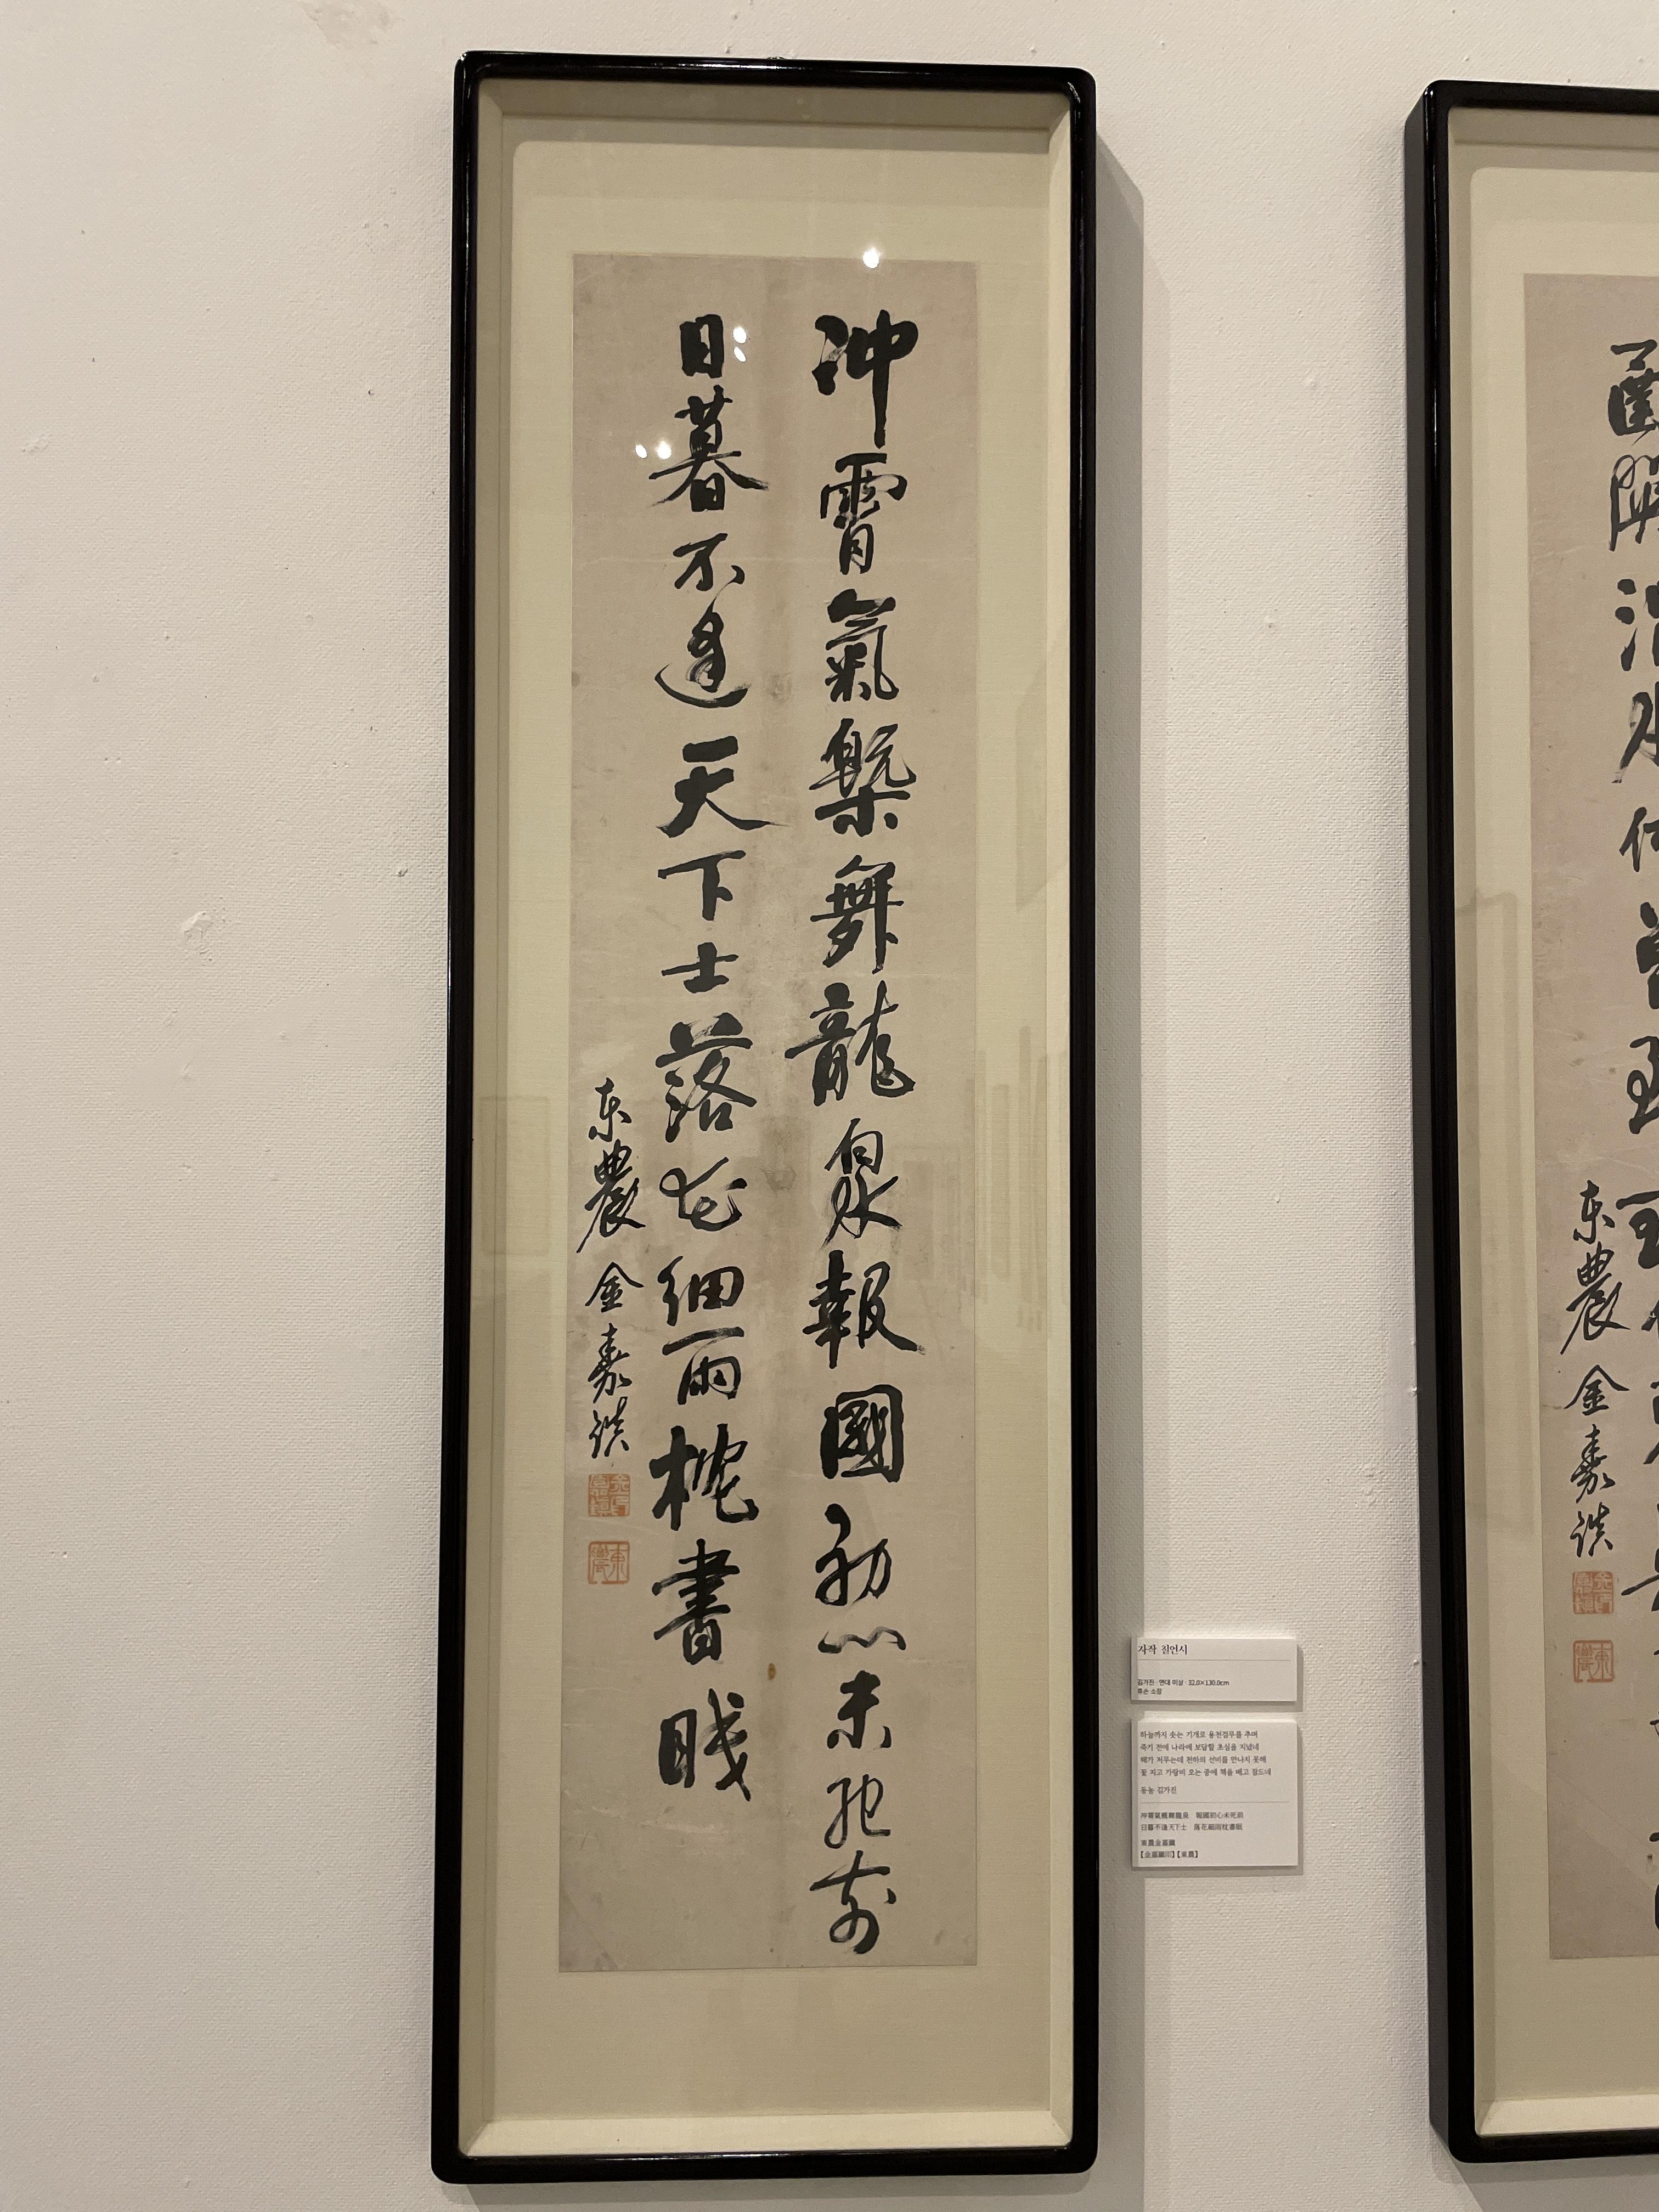 沖霄氣槩舞龍泉報國初心未死前
日暮不逢天下士落花細雨枕書眠
东農金嘉鎮
東農
자작 칠언시
김가진 · 연대 미상 · 32.0×130.0cm
후손 소장
하늘까지 솟는 기개로 용천검무를 추며
죽기 전에 나라에 보답할 초심을 지녔네
해가 저무는데 천하의 선비를 만나지 못해
꽃 지고 가랑비 오는 중에 책을 베고 잠드네
동농 김가진
沖霄氣槪舞龍泉 報國初心未死前
日暮不逢天下士 落花細雨枕書眠
東農金嘉鎭
【金嘉鎭印】【東農】
东農金嘉鎮
東農